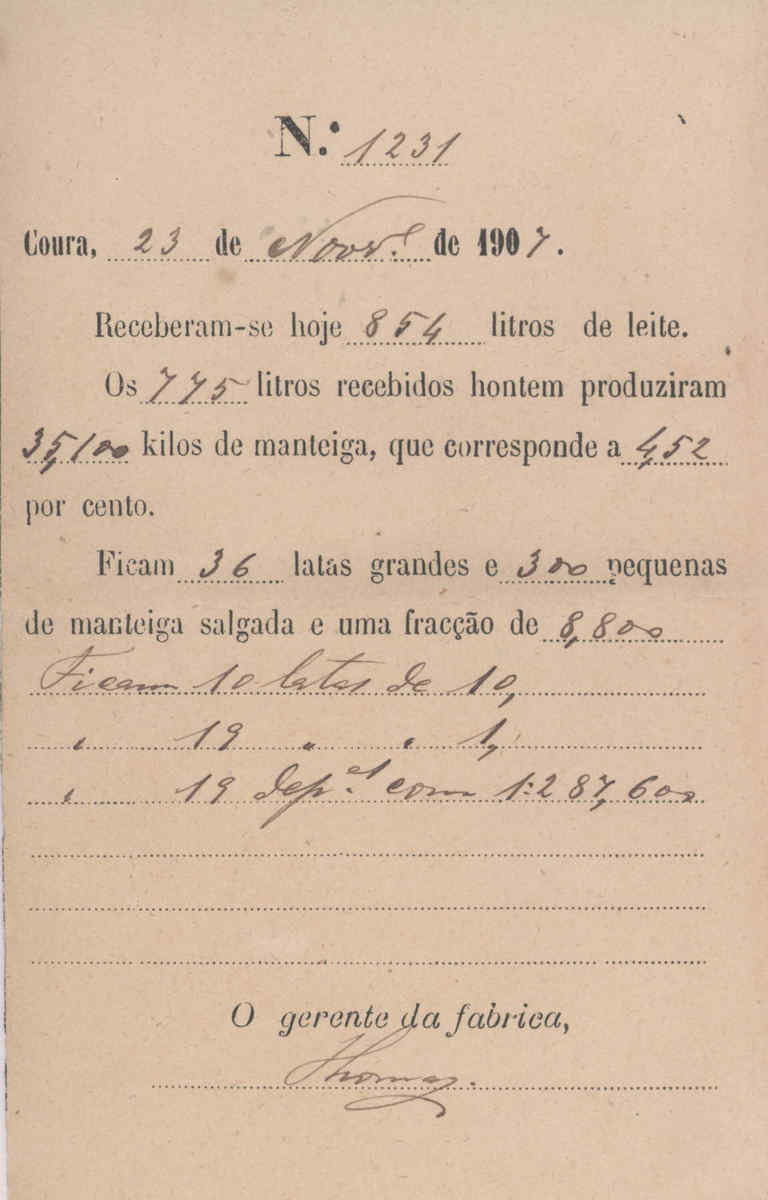 N.º 1231
Coura, 23 de Novr.º de 1907.
Receberam-se hoje 854 litros de leite.
Os 775 litros recebidos hontem produziram
35,100 kilos de manteiga, que corresponde a 4,52
por cento.
Ficam 36 latas grandes e 300 pequenas
de manteiga salgada e uma fracção de 8,800
Ficam 10 latas de 10,
" 19 " " 1,
" 19 dep.os com 1:287,600
O gerente da fabrica,
Thomaz.